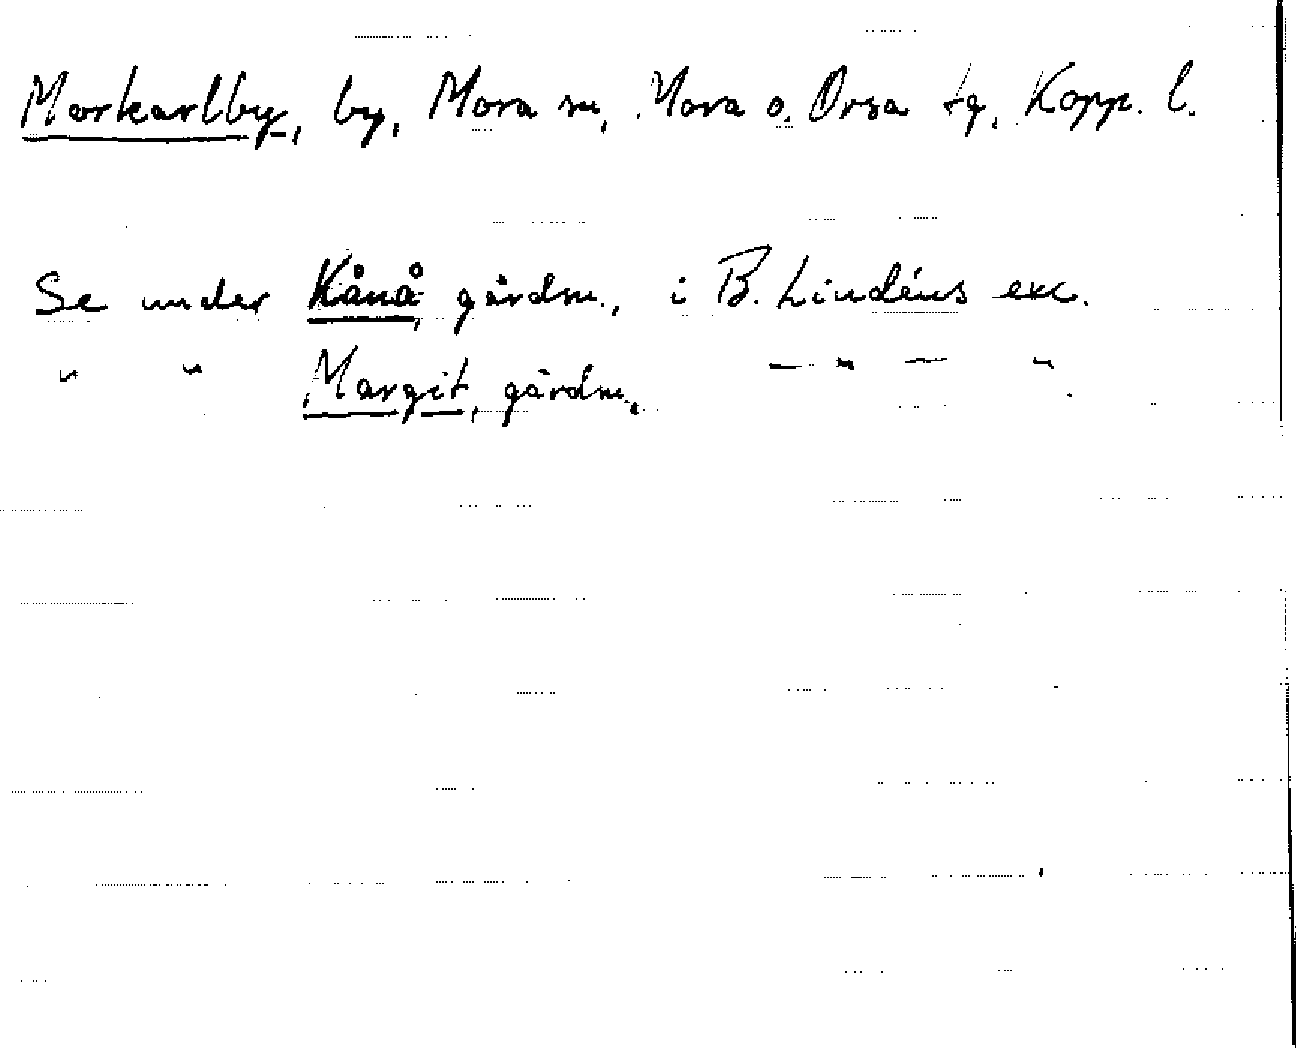 Morkarlby, by, Mora sn, Mora o. Orsa tg, Kopp. l.
Se under Kånå, gårdsn., i B. Lindéns exc.
" " Margit, gårdsn., — " — " .